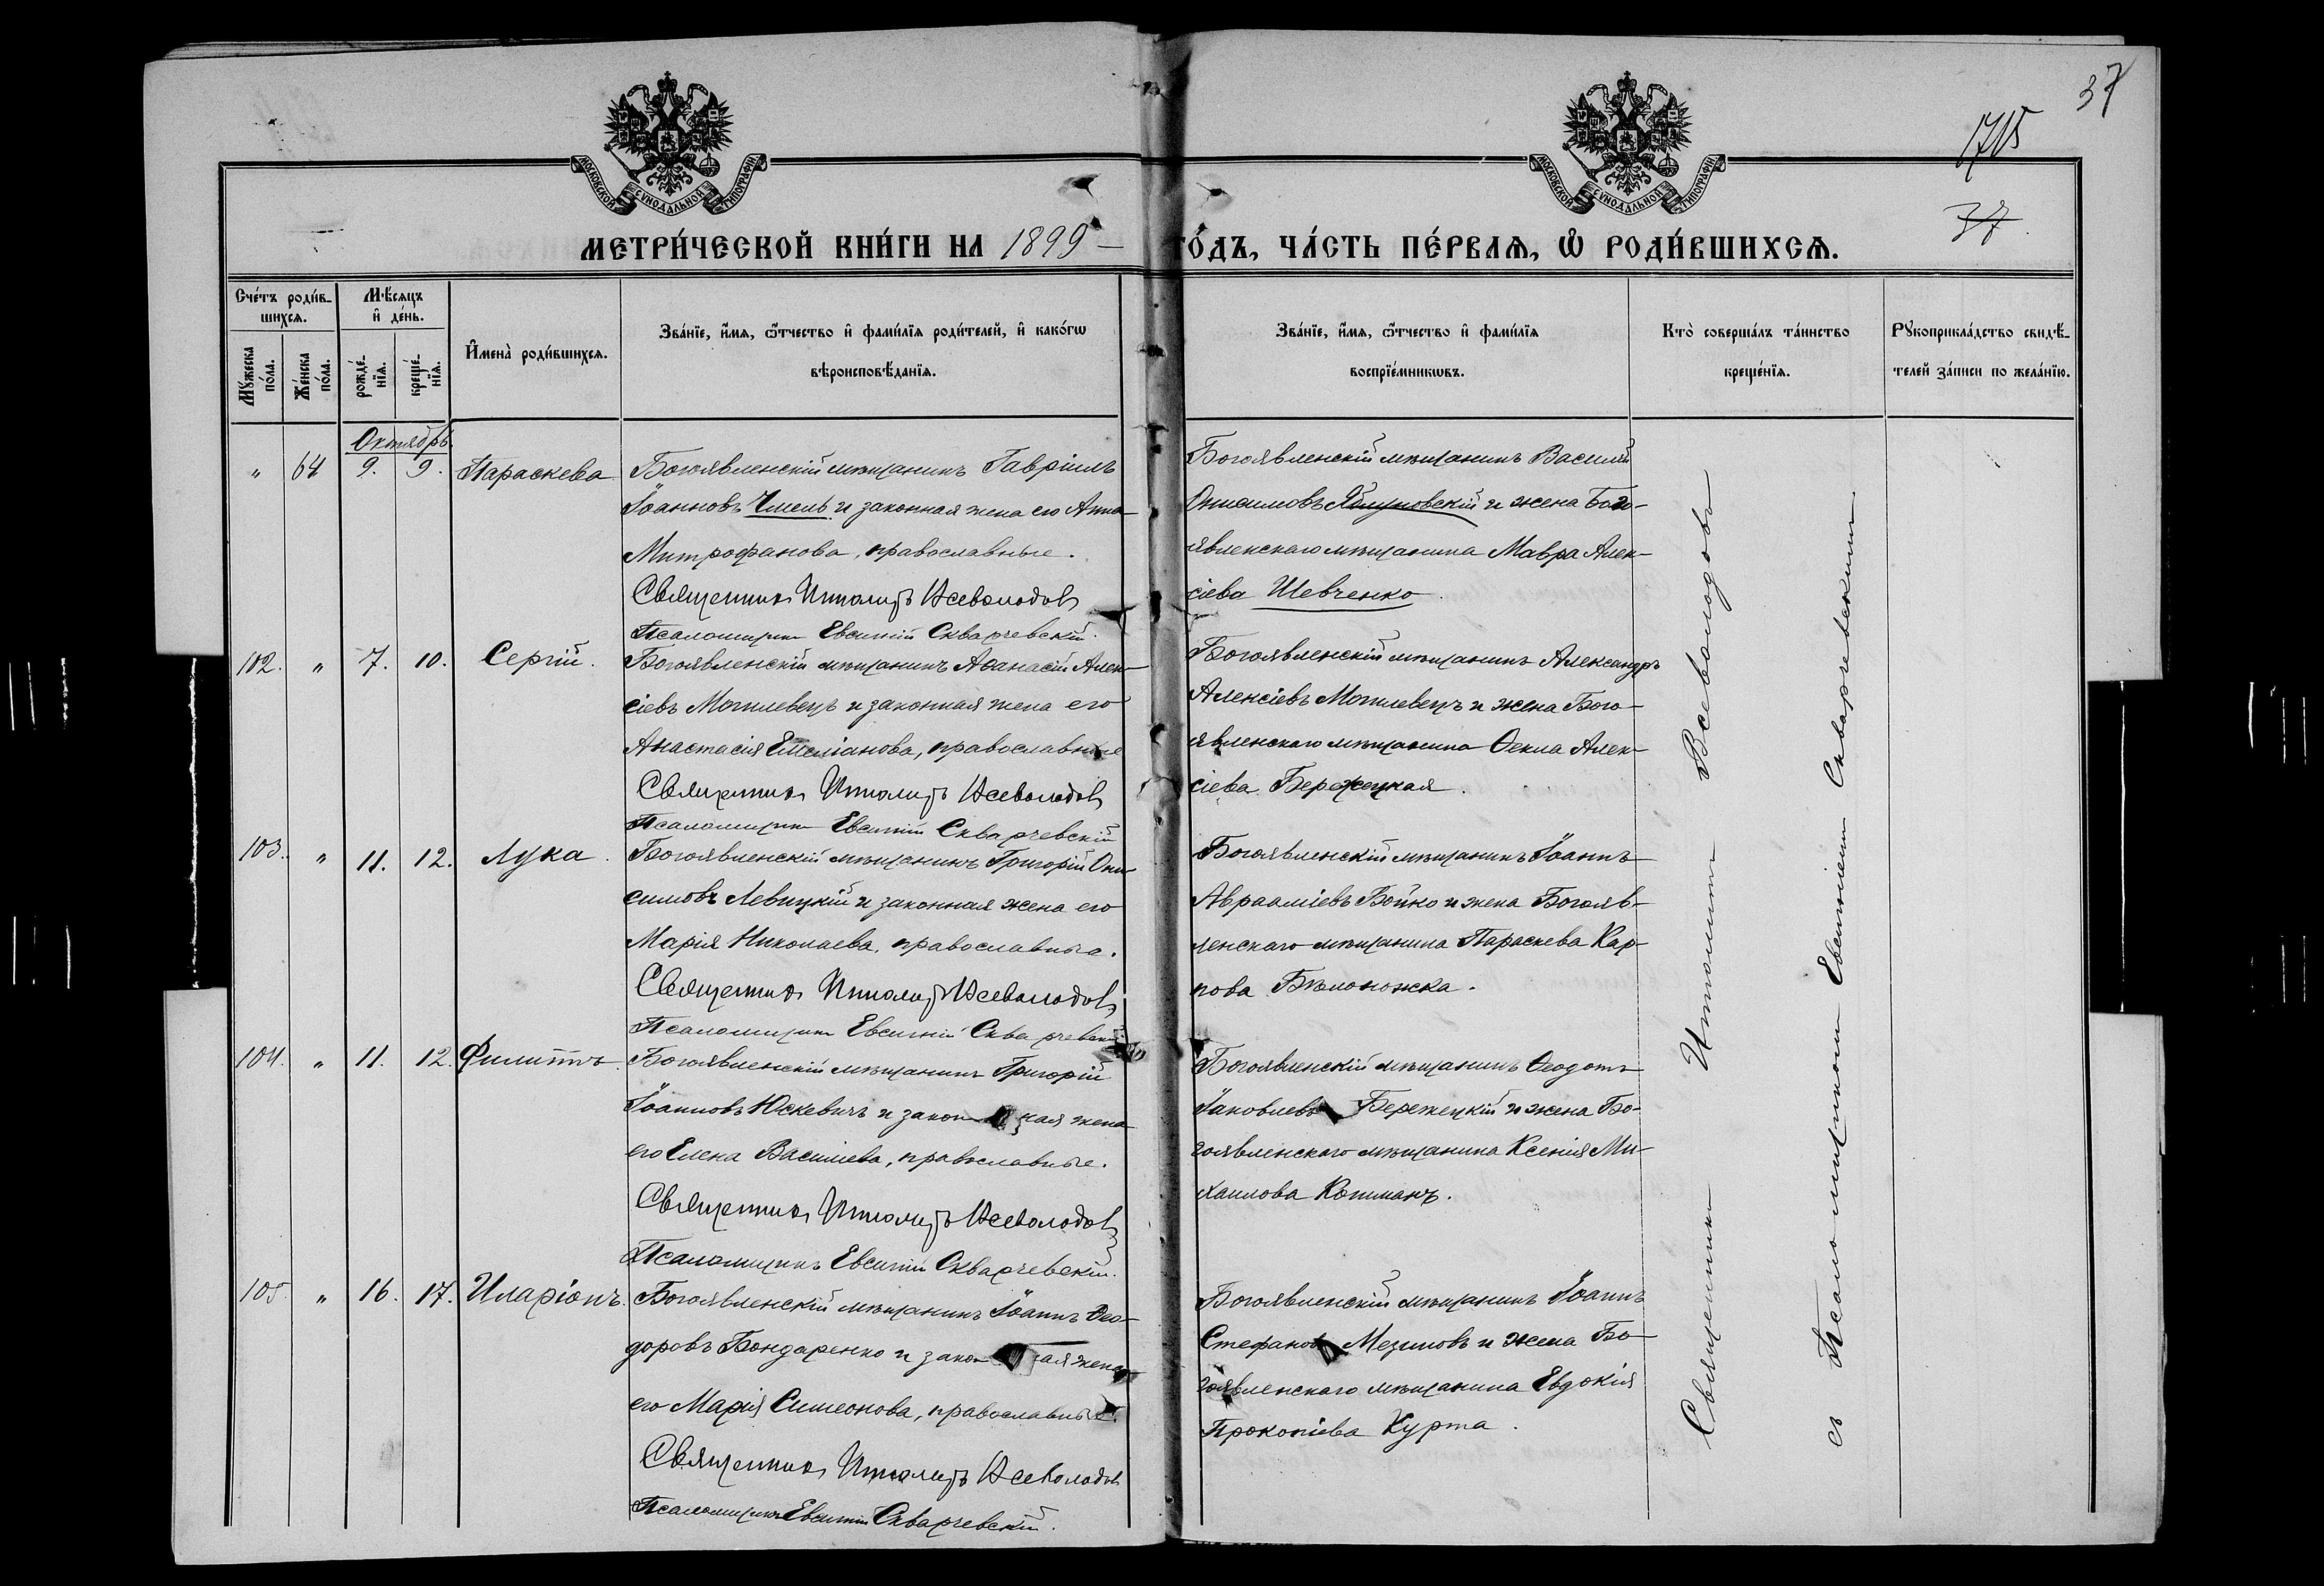 37
1715
37
МОСКОВСКОЙ СѴНОДАЛЬНОЙ ТИПОГРАФІИ
МОСКОВСКОЙ СѴНОДАЛЬНОЙ ТИПОГРАФІИ
МЕТРИ́ЧЕСКОЙ КНИ́ГИ НА 1899 – ГО́ДЪ, ЧА́СТЬ ПЕ́РВАѦ, Ѡ РОДИ́ВШИХСѦ.
Сче́тъ роди́в-
шихсѧ.
Мꙋ́жеска по́ла.
Же́нска по́ла.
Мѣ́сѧцъ и де́нь.
рожде́-нїѧ.
креще́-нїѧ.
Имена̀ роди́вшихсѧ.
Зва́нїе, и́мѧ, ѻ́тчество и фами́лїѧ роди́телей, и како́гѡ
вѣроисповѣ́данїѧ.
Зва́нїе, и́мѧ, ѻ́тчество и фами́лїѧ
воспрїе́мникѡвъ.
Кто̀ соверша́лъ та́инство
креще́нїѧ.
Рꙋкоприкла́дство свидѣ́-
телей за́писи по жела́нїю.
Октябрь.
" 64 9. 9. Параскева
Богоявленскій мѣщанинъ Гавріилъ
Іоанновъ Чмель и законная жена его Анна
Митрофанова, православные.
Священникъ Ипполитъ Всеволодовъ
Псаломщикъ Евсигній Скварчевскій.
Богоявленскій мѣщанинъ Василій
Онисимовъ Яблуновскій и жена Бого-
явленскаго мѣщанина Мавра Алек-
сіева Шевченко.
102. " 7. 10. Сергій.
Богоявленскій мѣщанинъ Аѳанасій Алек-
сіевъ Могилевецъ и законная жена его
Анастасія Емеліанова, православные
Священникъ Ипполитъ Всеволодовъ
Псаломщикъ Евсигній Скварчевскій
Богоявленскій мѣщанинъ Александръ
Алексіевъ Могилевецъ и жена Бого-
явленскаго мѣщанина Ѳекла Алек-
сіева Бережецкая.
103. " 11. 12. Лука.
Богоявленскій мѣщанинъ Григорій Они-
симовъ Левицкій и законная жена его
Марія Николаева, православные.
Священникъ Ипполитъ Всеволодовъ
Псаломщикъ Евсигній Скварчевскій
Богоявленскій мѣщанинъ Іоаннъ
Авраамiевъ Бойко и жена Богояв-
ленскаго мѣщанина Параскева Кар-
пова Бѣлоножка.
104. " 11. 12. Филиппъ.
Богоявленскій мѣщанинъ Григорій
Іоанновъ Юскевичъ и законная жена
его Елена Василіева, православные.
Священникъ Ипполитъ Всеволодовъ
Псаломщикъ Евсигній Скварчевскій.
Богоявленскій мѣщанинъ Ѳеодотъ
Іаковлевъ Бережецкій и жена Бо-
гоявленскаго мѣщанина Ксенія Ми-
хаилова
105. " 16. 17. Иларіонъ.
Богоявленскій мѣщанинъ Іоаннъ Ѳео-
доровъ Бондаренко и законная жена
его Марія Симеонова, православные.
Священникъ Ипполитъ Всеволодовъ
Псаломщикъ Евсигній Скварчевскій.
Богоявленскій мѣщанинъ Іоаннъ
Стефановъ и жена Бо-
гоявленскаго мѣщанина Евдокія
Прокопіева Курта.
Священникъ Ипполитъ Всеволодовъ
съ Псаломщикомъ Евсигніемъ Скварчевскимъ